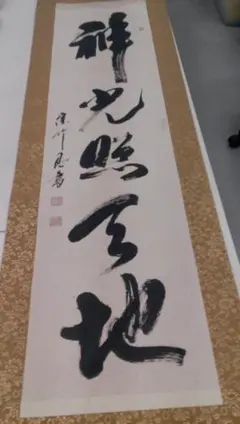 祥光照天地